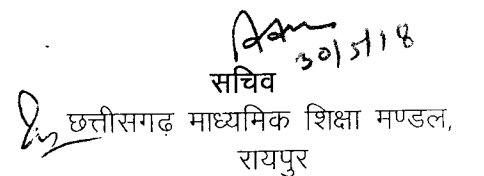 30/5/18
सचिव
छत्तीसगढ़ माध्यमिक शिक्षा मण्डल,
रायपुर